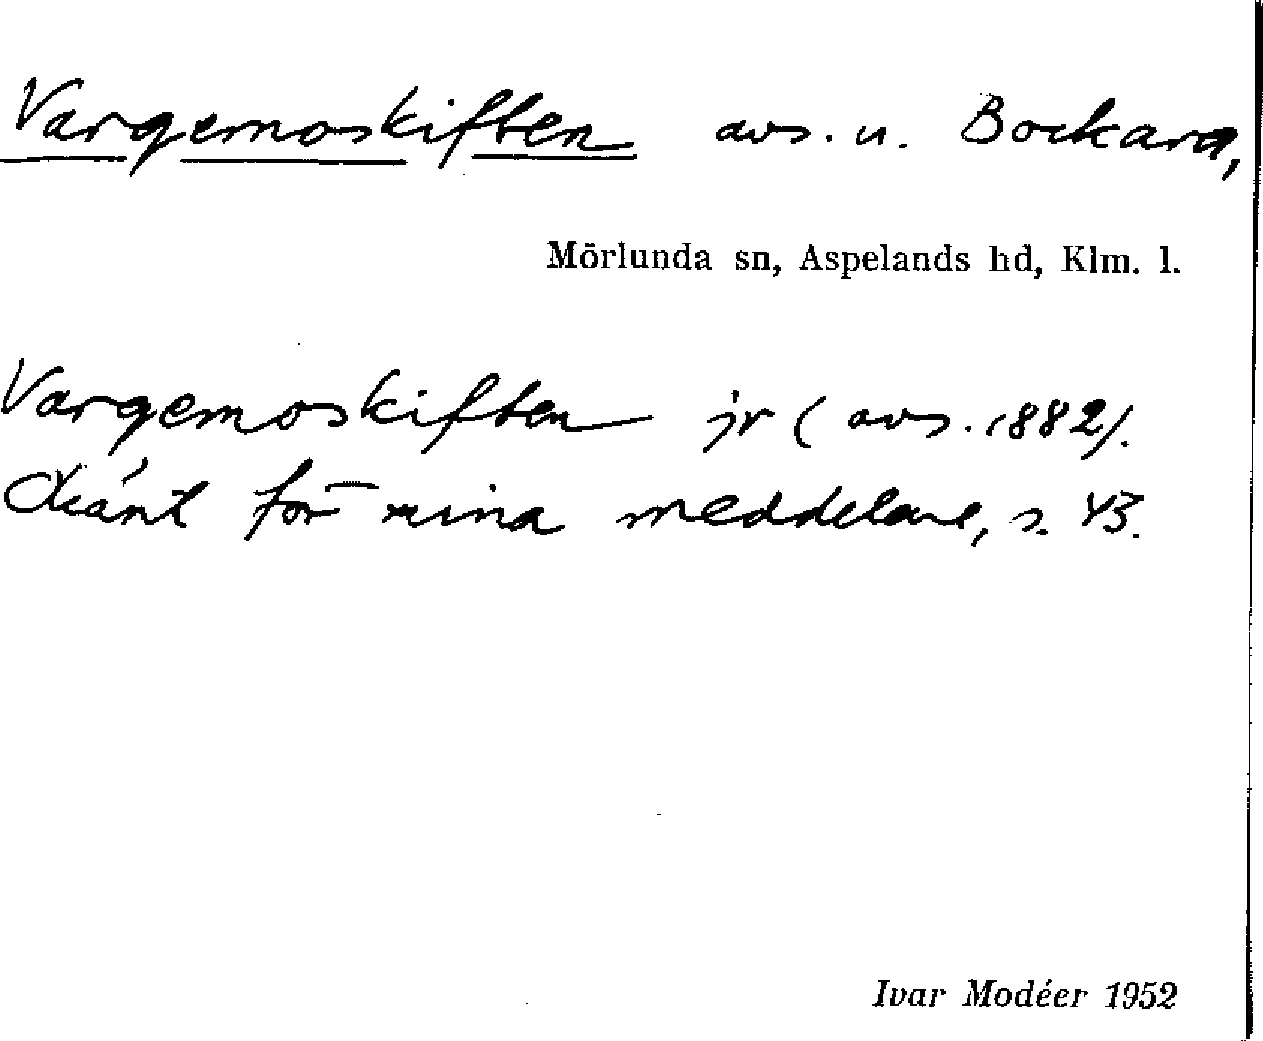 Vargemoskiften avs. u. Bockara,
Mörlunda sn, Aspelands hd, Klm. l.
Vargemoskiften jr (avs. 1882).
Okänt för mina meddelare, s. 43.
Ivar Modéer 1952